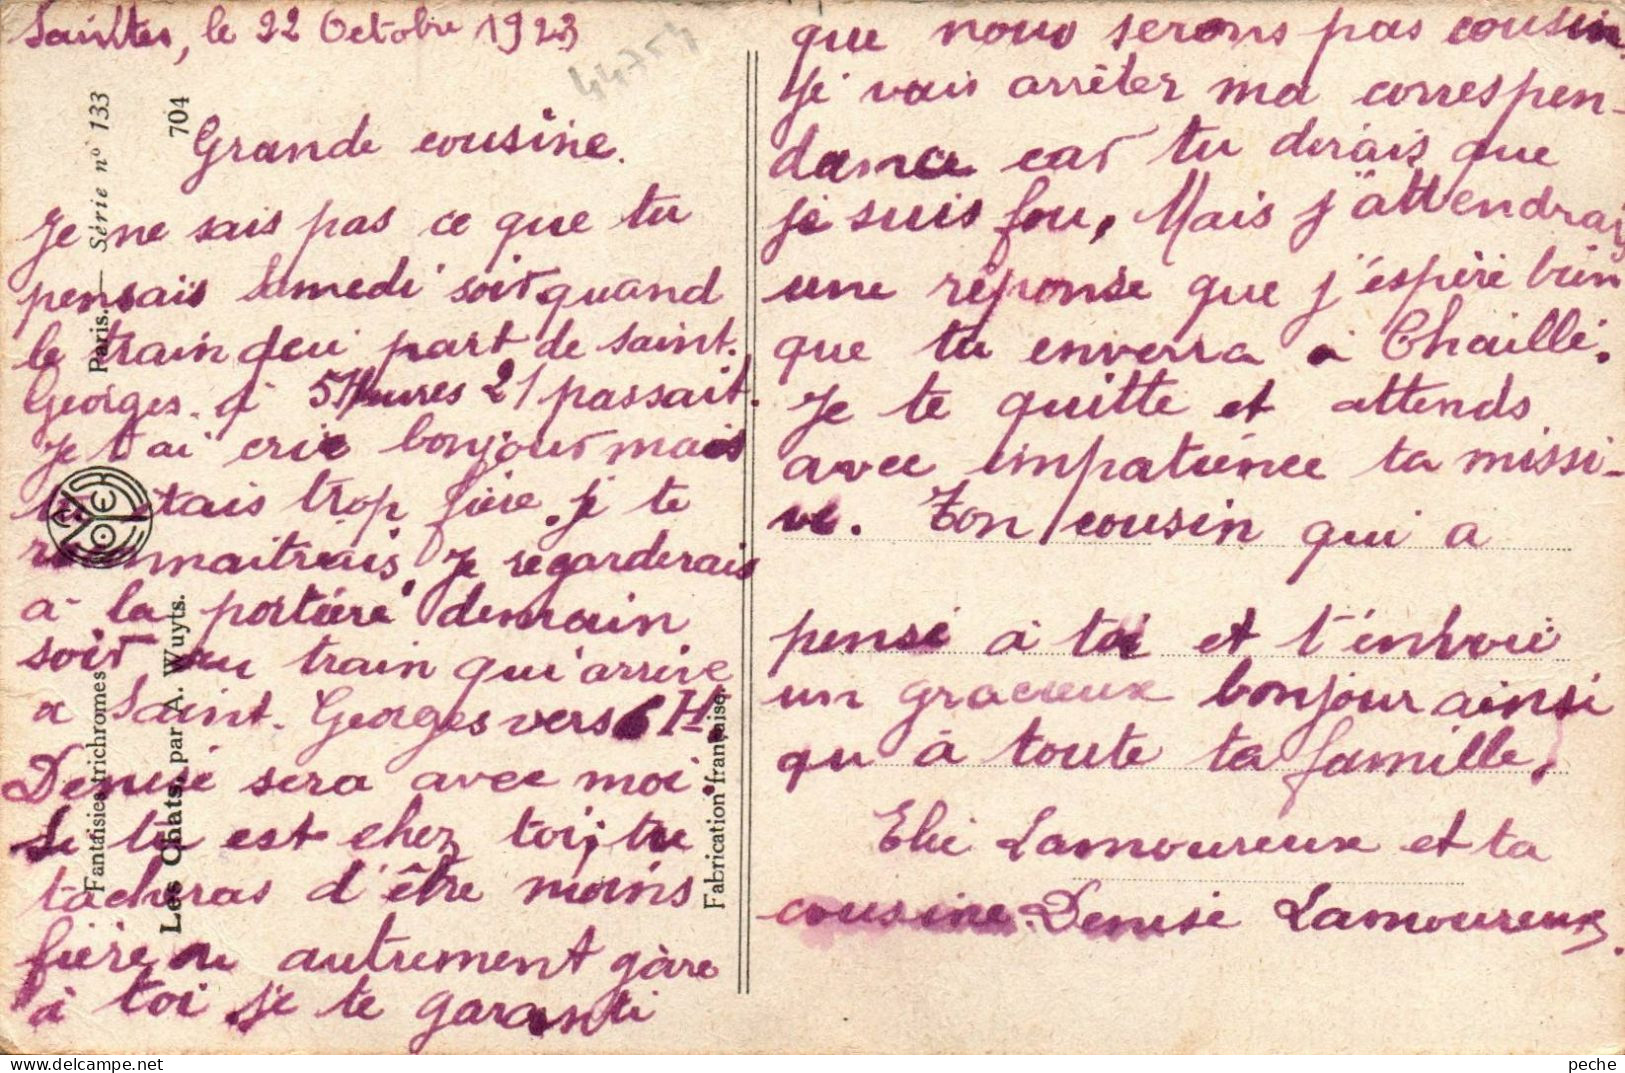 Saintes, le 22 Octobre 1923
44754
Grande cousine.
Je ne sais pas ce que tu
pensais Samedi soir quand
le train qui part de Saint.
Georges à 5 Heures 21 passait.
Je t'ai crié bonjour mais
tu étais trop fière. je te
reconnaitrais. Je regarderais
à la portière demain
soir au train qui arrive
a Saint. Georges vers 6 H
Denise sera avec moi
Si tu est chez toi, tu
tacheras d'être moins
fière ou autrement gare
à toi je te garanti
que nous serons pas cousin.
Je vais arrêter ma correspen-
dance car tu dirais que
je suis fou. Mais j'attendrai
une réponse que j'espère bien
que tu enverra à Chaillé.
Je te quitte et attends
avec impatience ta missi-
ve. Ton cousin qui a
pensé à toi et t'envoie
un gracieux bonjour ainsi
qu à toute ta famille.
Elie Lamoureux et ta
cousine. Denise Lamoureux.
Fantaisies trichromes Paris. — Série n° 133
Les Chats, par A. Wuyts. 704
Fabrication française.
peche